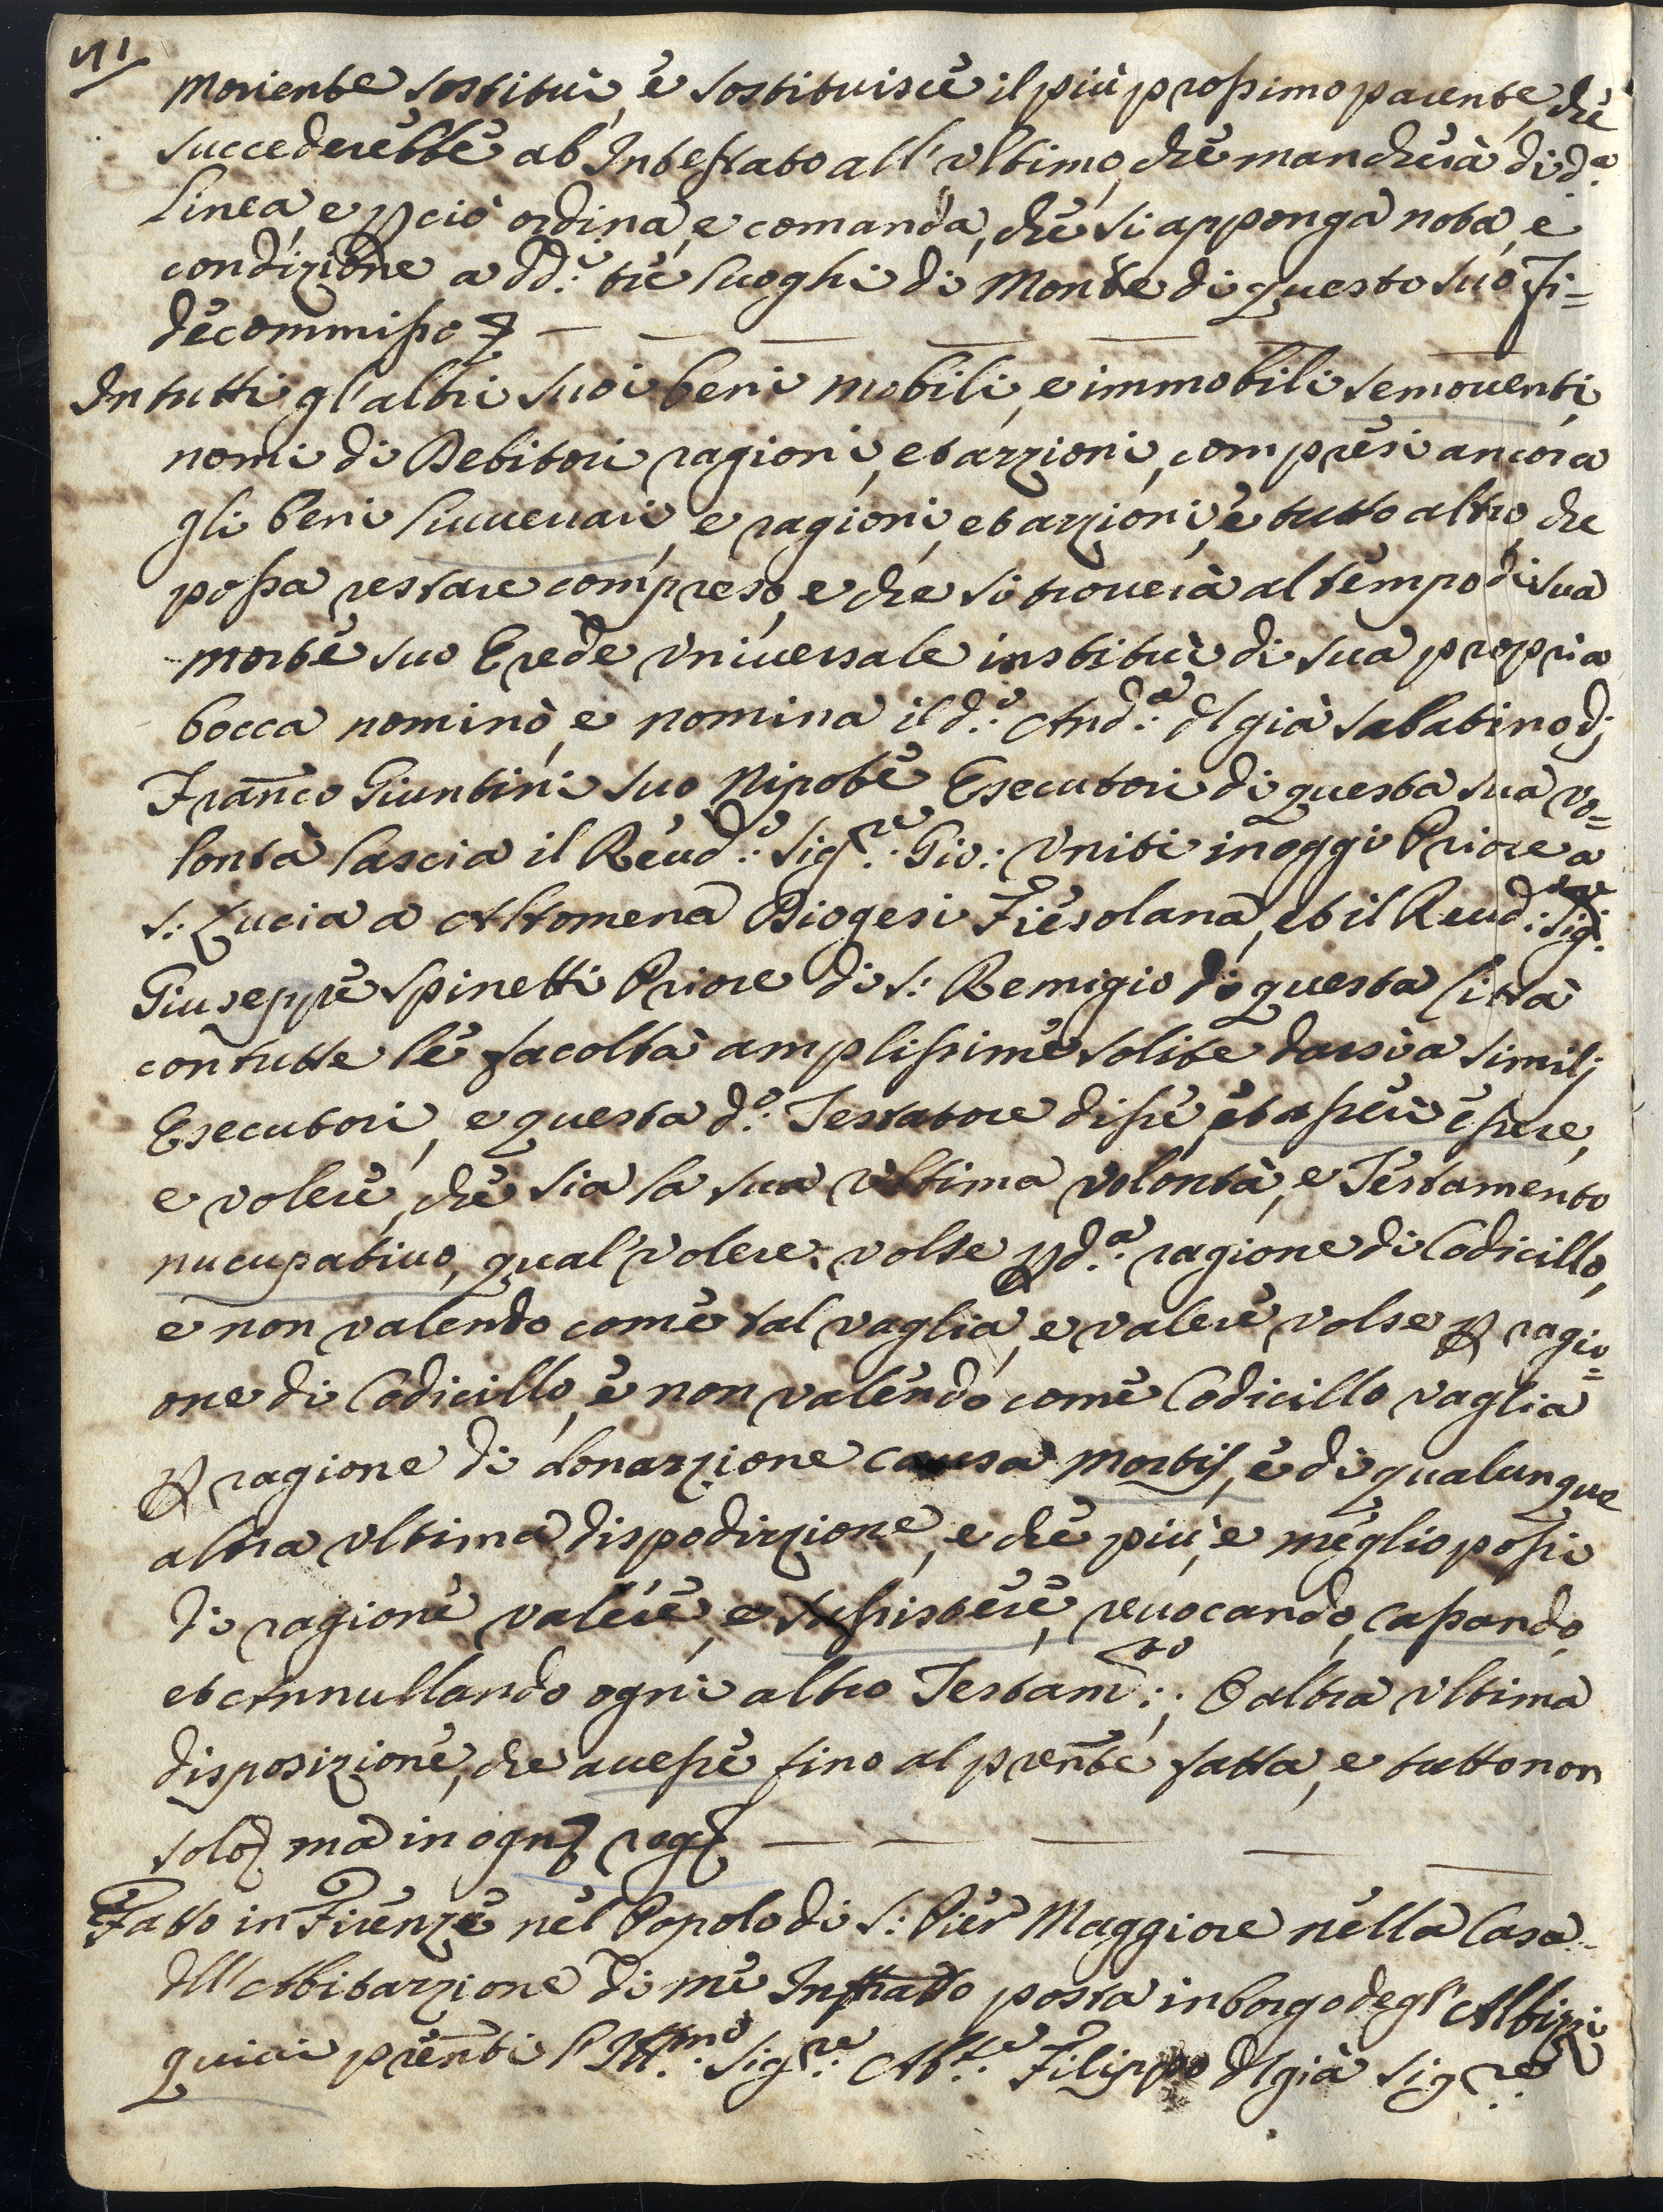 moriente sostituì, e sostituisce il più prossimo parente, che
succederebbe ab Intestato all'ultimo, che mancherà di d.ª
linea, e p ciò ordina, e comanda, che si apponga nota, e
condizione a dd.i tre luoghi di Monte di questo suo Fi=
decommisso
In tutti gl'altri suoi beni mobili, e immobili semoventi,
nomi di Debitori ragioni, et azzioni, compresi ancora
gli beni livvellari, e ragioni, et azzioni, e tutto altro, che
possa restare compreso, e che si troverà al tempo di sua
morte suo Erede universale instituì di sua propria
bocca nominò, e nomina il d.º And.ª dl già Sabatino di
Fran̄co Giuntini suo Nipote Esecutori di questa sua vo=
lontà lascia il Reud.º Sig.re Gio: Uniti in oggi Priore a
S: Lucia a Altomena Diogesi Fiesolana, et il Reud: Sig.re
Giuseppe Spinetti Priore di S: Remigio di questa Città
con tutte le facoltà amplissime solite darsi a similj
Esecutori, e questa d.º Testatore disse, et asserì essere,
e volere, che sia la sua ultima volontà, e Testamento
nucupativo, qual volere volse p d.ª ragione di Codicillo,
e non valendo come tal vaglia, e valere volse p ragi=
one di Codicillo, e non valendo come Codicillo vaglia
p ragione di donazzione causa mortis, e di qualunque
altra ultima dispodizzione, e che più, e meglio possi
di ragione valere, e sussistere, revocando, cassando,
et annullando ogni altro Testam.to, O altra ultima
disposizione, che avesse fino al pren̄te fatta, e tutto non
solo ma in ogn
Fatto in Firenze nel Popolo di S: Pier Maggiore nella Casa
dll'Abitazzione di me Infratto posta in borgo degl'Albizzi
quivi pren̄ti l'Ill.mo Sig.re Ab.te Filippo dl già Sig.re